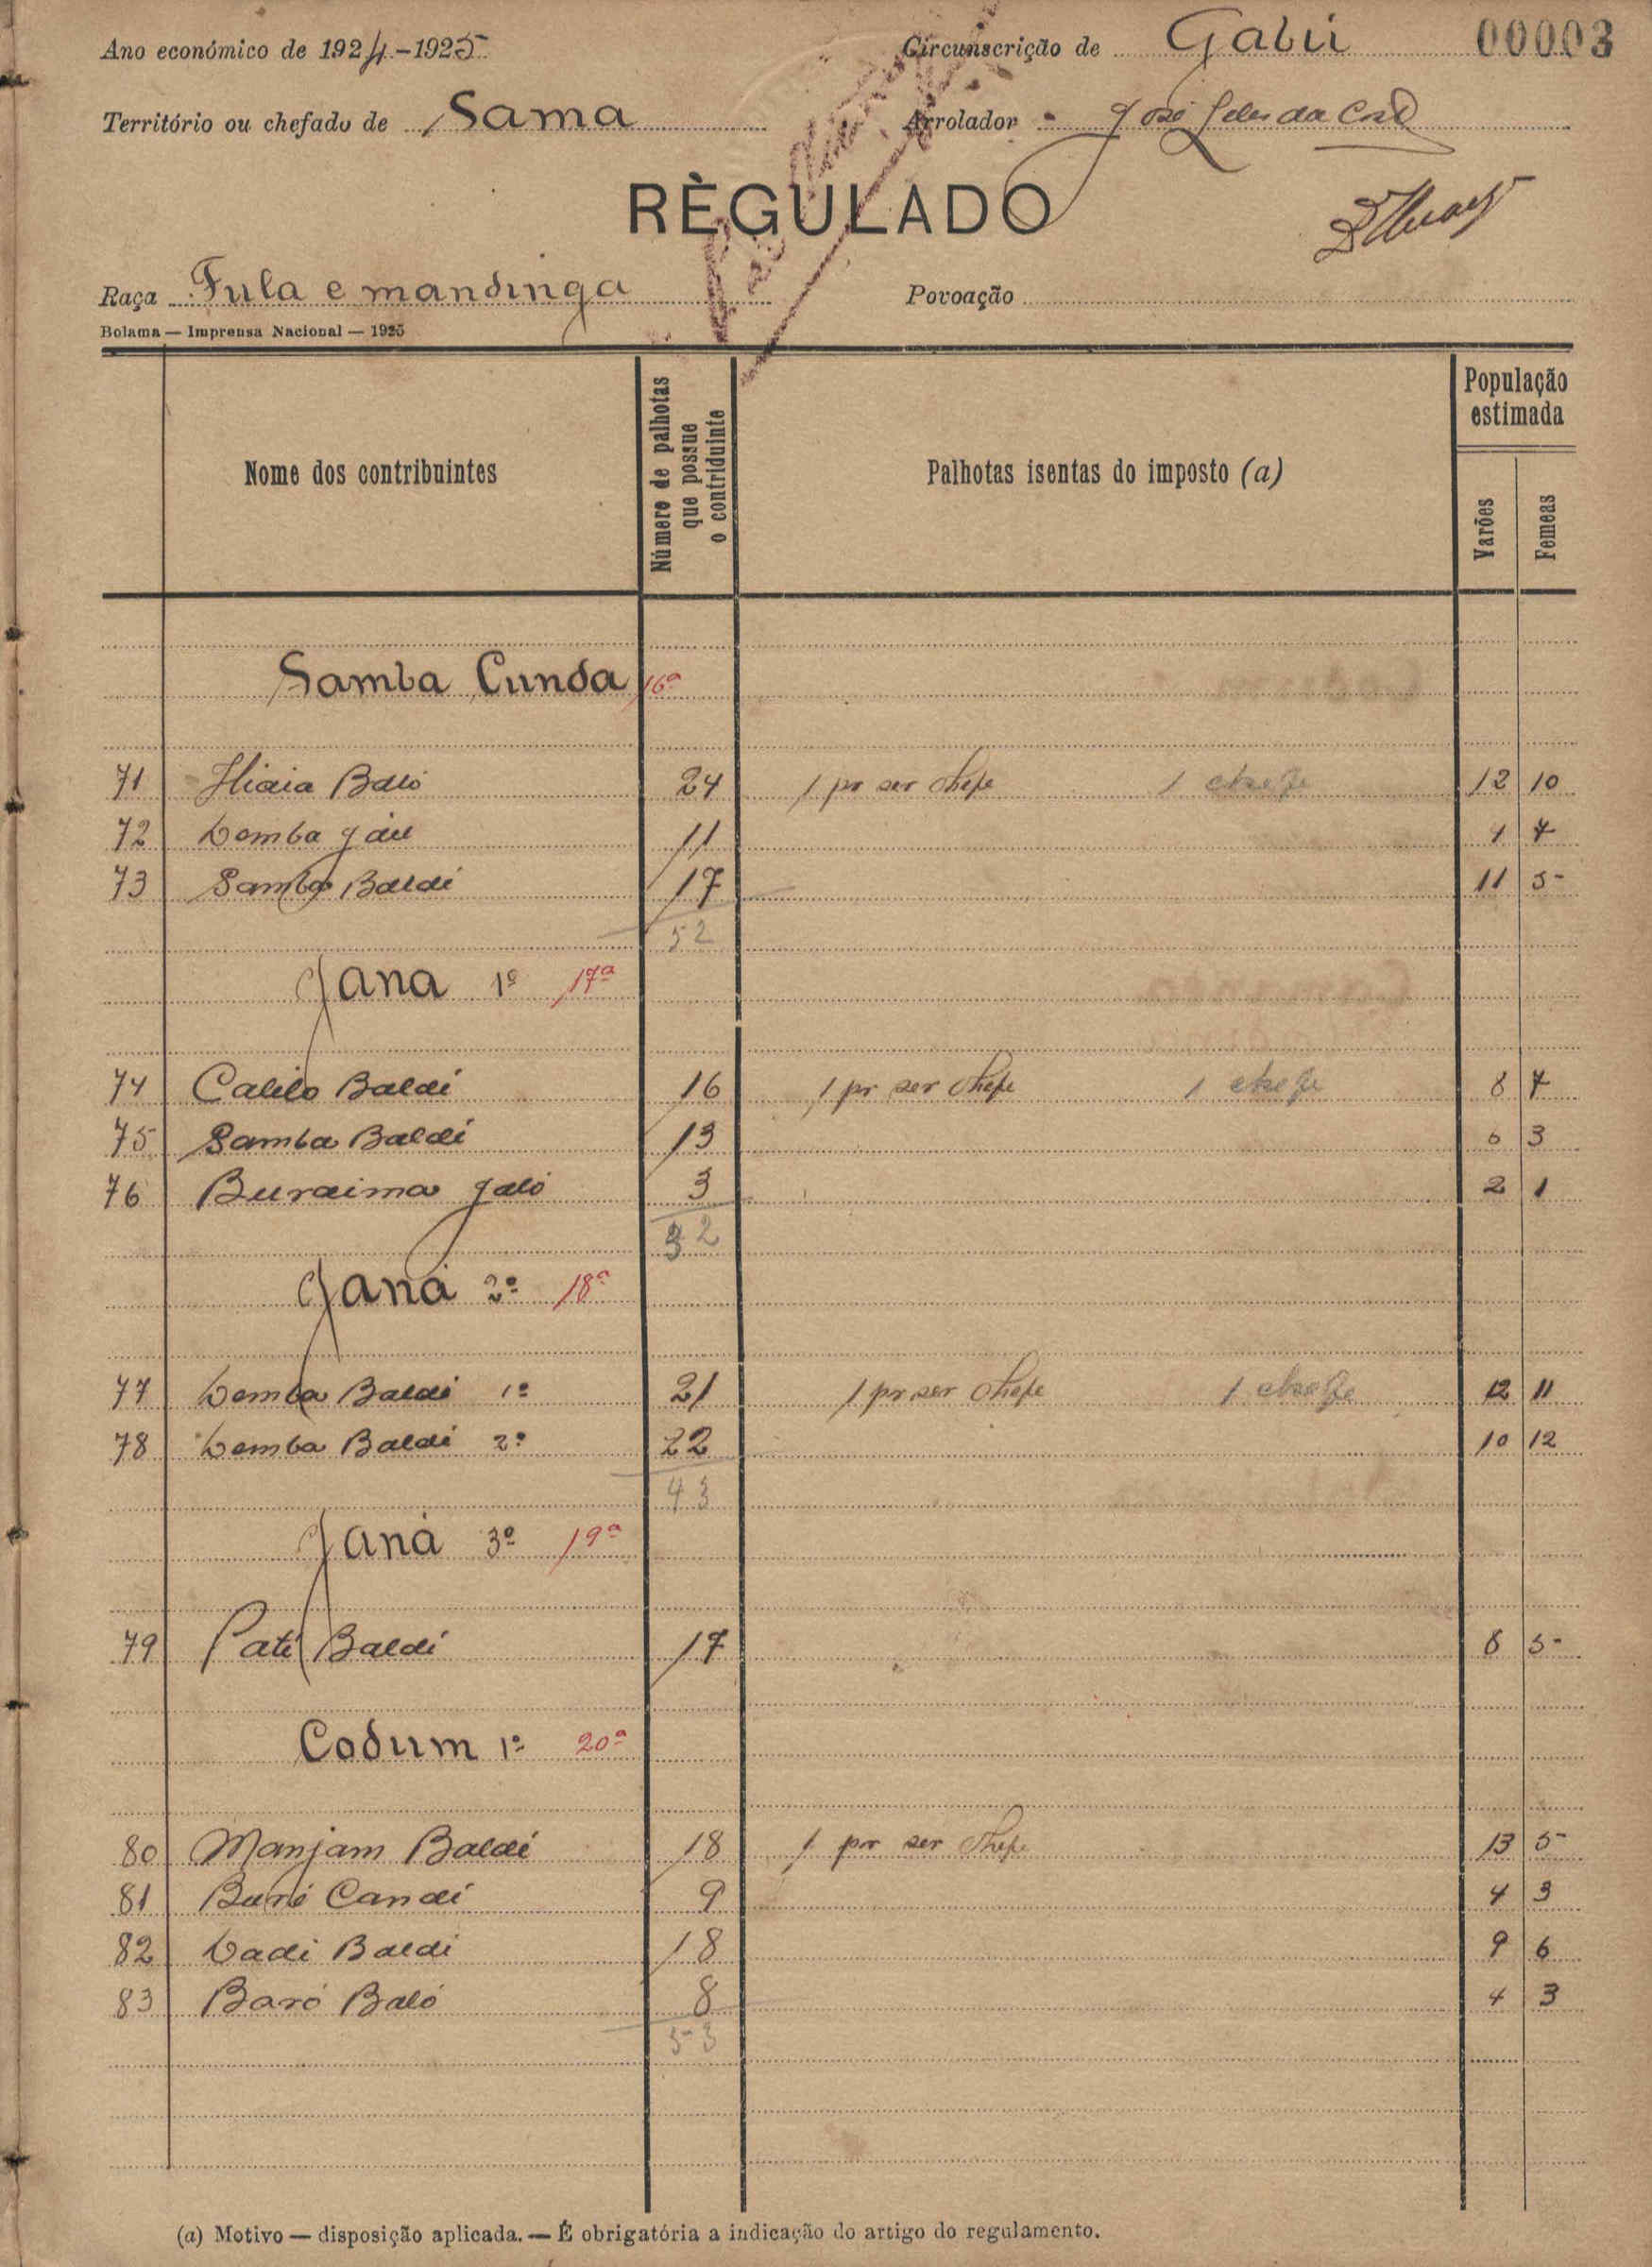 Ano económico de 1924-1925 Circunscrição de Gabú 00003
Território ou chefado de Sama Arrolador José da
RÈGULADO
Raça Fula e mandinga Povoação
Bolama — Imprensa Nacional — 1925
Nome dos contribuintes Número de palhotas que possue o contriduinte Palhotas isentas do imposto (a) População estimada
Varões Femeas
Samba Cunda 16ª
71 Baló 24 1 por ser chefe 1 chefe 12 10
72 Demba 11 4
73 Samba Baldé 17 11 5
52
Jana 1º 17ª
74 Calilo Baldé 16 1 pr ser chefe 1 chefe 8 7
75 Samba Baldé 13 6 3
76 Buraima Jaló 3 2 1
32
Janá 2º 18ª
77 Demba Baldé 1º 21 1 pr ser chefe 1 chefe 12 11
78 Demba Baldé 2º 22 10 12
43
Janá 3º 19ª
79 Paté Baldé 17 8 5
Codum 1º 20ª
80 Manjam Baldé 18 1 por ser chefe 13 5
81 Candé 9 4 3
82 Dadi Baldé 18 9 6
83 Baró Baló 8 4 3
53
(a) Motivo — disposição aplicada. — É obrigatória a indicação do artigo do regulamento.